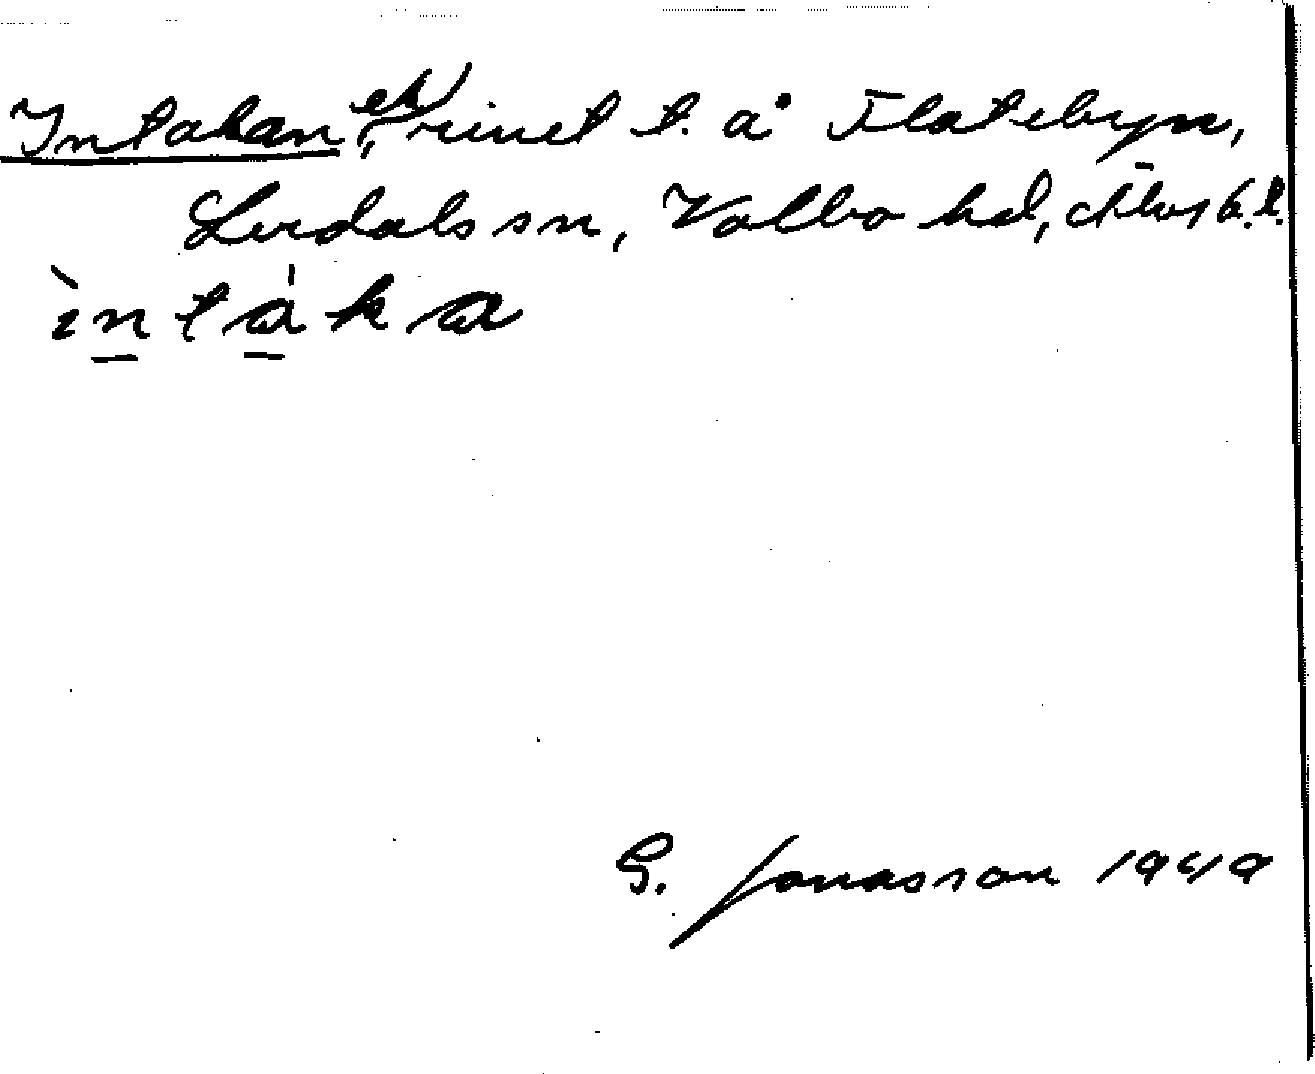 Intakan (ek), rivet t. å Flatebyn,
Lerdals sn, Valbo hd, Älvsb. l.
ìntáka
G. Jonasson 1949